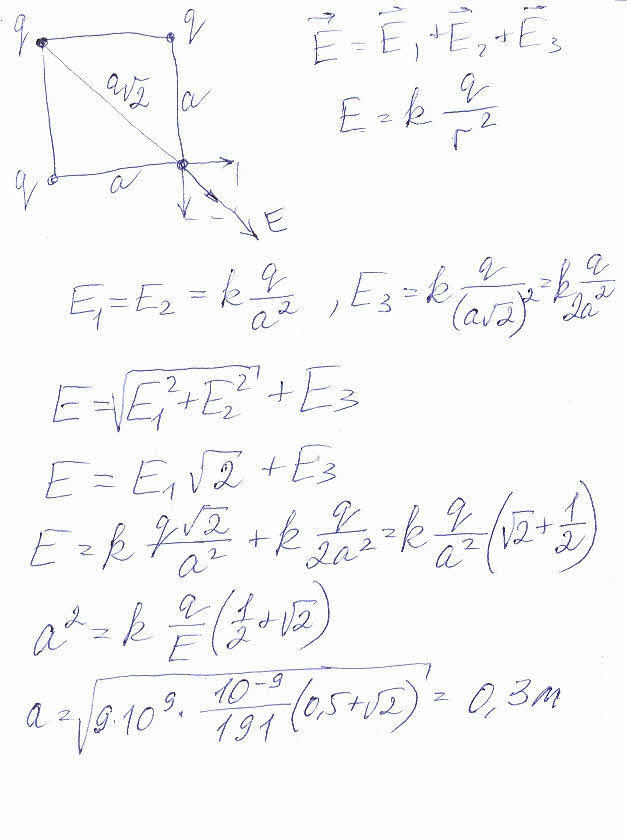 q q
a√2
a
q a
E
E⃗ = E⃗₁ + E⃗₂ + E⃗₃
E = k q/r²
E₁ = E₂ = k q/a² , E₃ = k q/(a√2)² = k q/2a²
E = √(E₁² + E₂²) + E₃
E = E₁√2 + E₃
E = k q√2/a² + k q/2a² = k q/a² (√2 + 1/2)
a² = k q/E (1/2 + √2)
a = √(9·10⁹ · 10⁻⁹/191 (0,5 + √2)) = 0,3 м